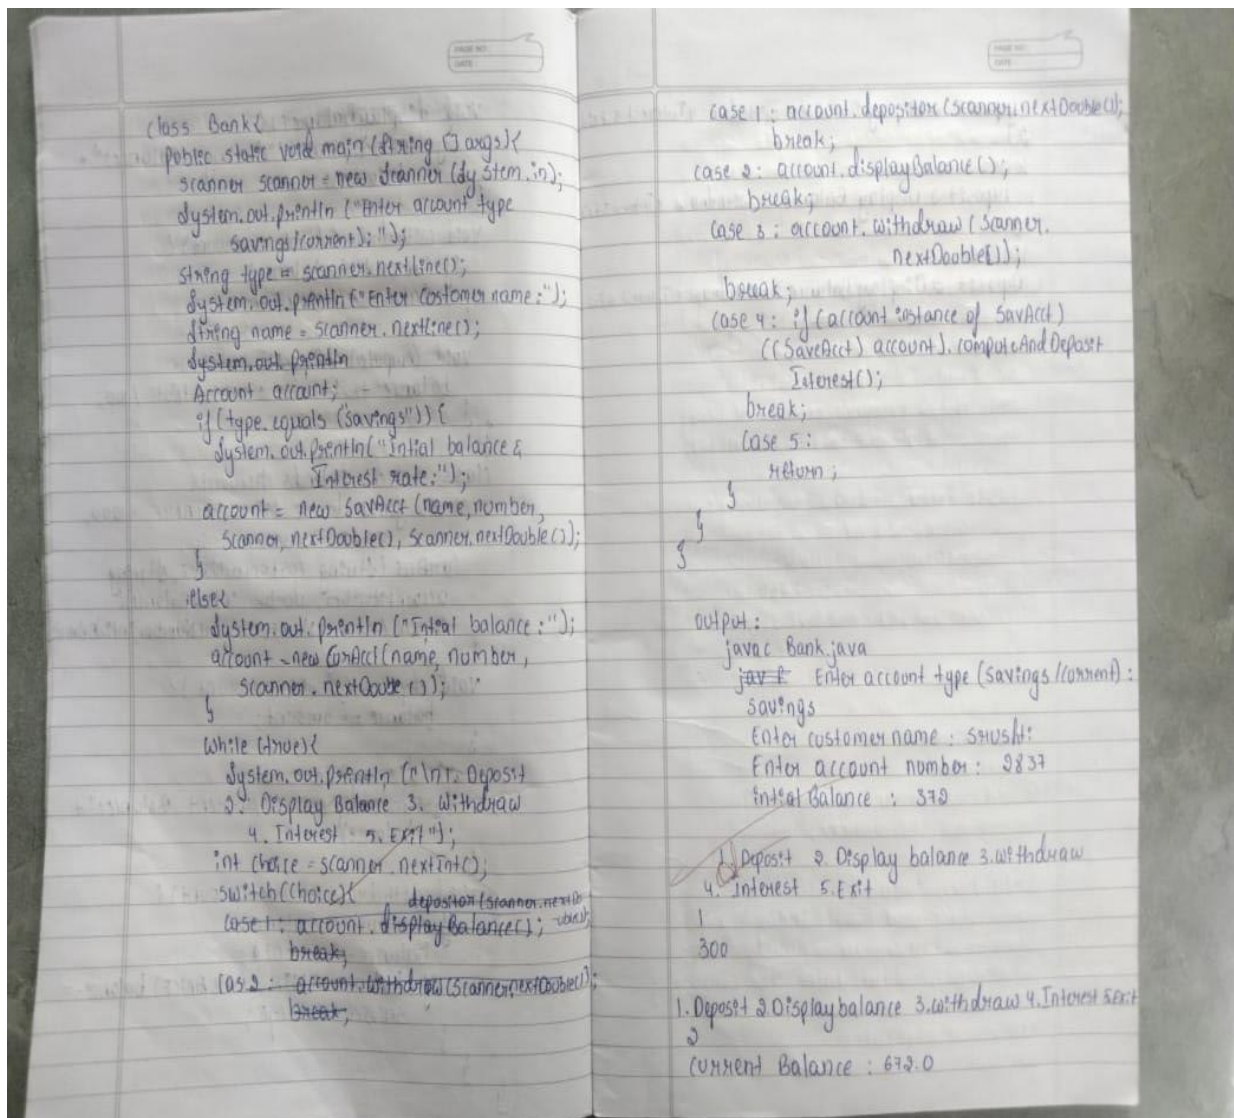 PAGE NO:
DATE:
class Bank{
public static void main (String [] args){
scanner scanner = new Scanner (System.in);
System.out.println ("Enter account type
savings/current): ");
string type = scanner.nextline();
System.out.println ("Enter customer name:");
String name = scanner.nextline();
System.out.println
Account account;
if (type.equals ("savings")) {
System.out.println("Intial balance &
Interest rate:");
account = new SavAcct (name, number,
scanner, nextDouble(), scanner.nextDouble());
}
else{
System.out.println ("Intial balance :");
account = new CurAcct (name, number,
scanner.nextDouble());
}
while (true){
System.out.println ("\n1. Deposit
2. Display Balance 3. Withdraw
4. Interest 5. Exit");
int choice = scanner.nextInt();
switch(choice){
depositor (scanner.nextDouble());
case 1: account.displayBalance();
break;
Cas 2: account.withdraw(scanner.nextDouble());
break;
PAGE NO:
DATE:
case 1: account.depositor (scanner.nextDouble());
break;
case 2: account.displayBalance();
break;
case 3: account.withdraw (scanner.
nextDouble());
break;
case 4: if (account instance of SavAcct)
((SaveAcct) account).computeAndDeposit
Interest();
break;
case 5:
return;
}
}
}
output:
javac Bank.java
Enter account type (savings/current):
savings
Enter customer name: srushti
Enter account number: 2837
intial Balance : 372
1. Deposit 2. Display balance 3. withdraw
4. Interest 5. Exit
1
300
1. Deposit 2 Display balance 3. withdraw 4. Interest 5. Exit
2
Current Balance : 672.0